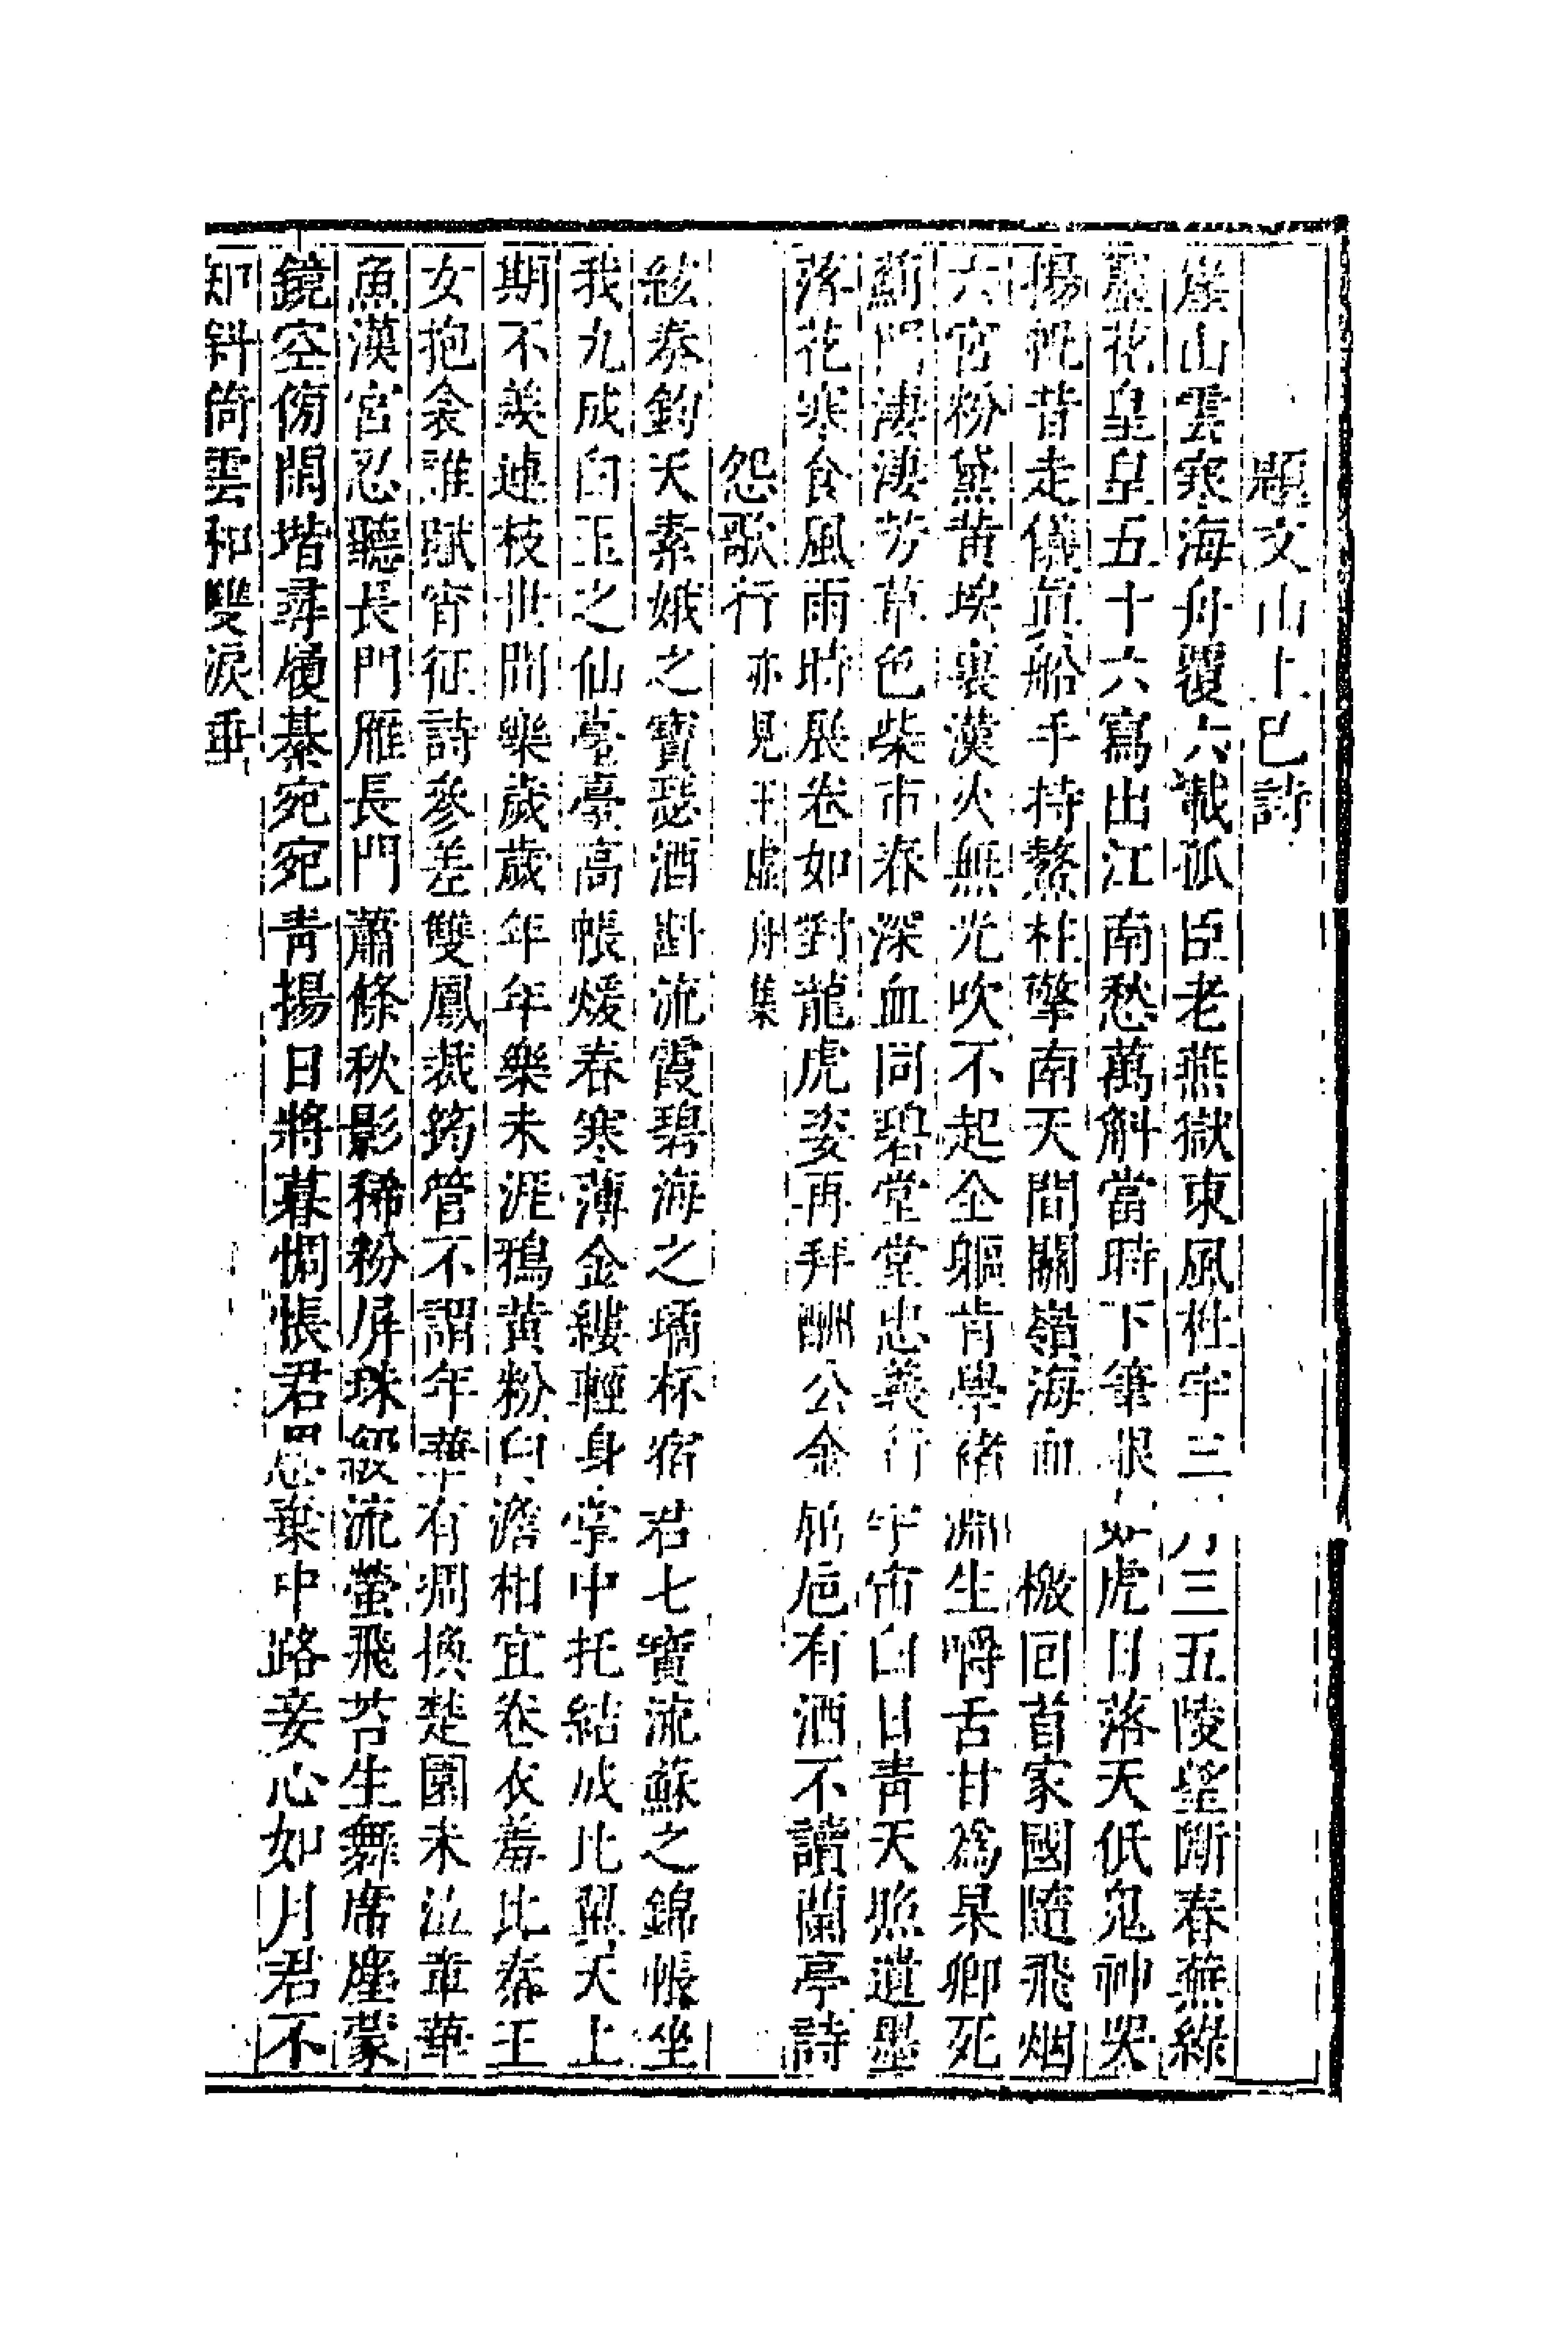 題文山上巳詩
崖山雲寒海舟覆六載孤臣老燕獄東風杜宇三月三五陵望斷春蕪綠
蘂花皇皇五十六寫出江南愁萬斛當時下筆眼如虎日落天低鬼神哭
傷祝昔走儀真船手持鰲柱擎南天間關嶺海血檄回首家國隨飛烟
六宮粉黛黃埃裏漢火無光吹不起全軀肯學褚淵生嚼舌甘為杲卿死
薊門淒淒芳草色柴市春深血同碧堂堂忠義行宇宙白日青天照遺墨
落花寒食風雨時展卷如對龍虎姿再拜酬公金屈卮有酒不讀蘭亭詩
怨歌行亦見王虛舟集
絃奏鈞天素娥之寶瑟酒斟流霞碧海之璚杯宿君七寶流蘇之錦帳坐
我九成白玉之仙臺臺高帳煖春寒薄金縷輕身掌中托結成比翼天上
期不羨連枝世間樂歲歲年年樂未涯鴉黃粉白澹相宜卷衣羞比秦王
女抱衾誰賦宵征詩參差雙鳳裁筠管不謂年華有凋換楚園未泣章華
魚漢宮忍聽長門雁長門蕭條秋影稀粉屏珠綴流螢飛苔生舞席塵蒙
鏡空傍閑堦尋履綦宛宛青揚日將暮惆悵君恩棄中路妾心如月君不
知斜倚雲和雙淚垂